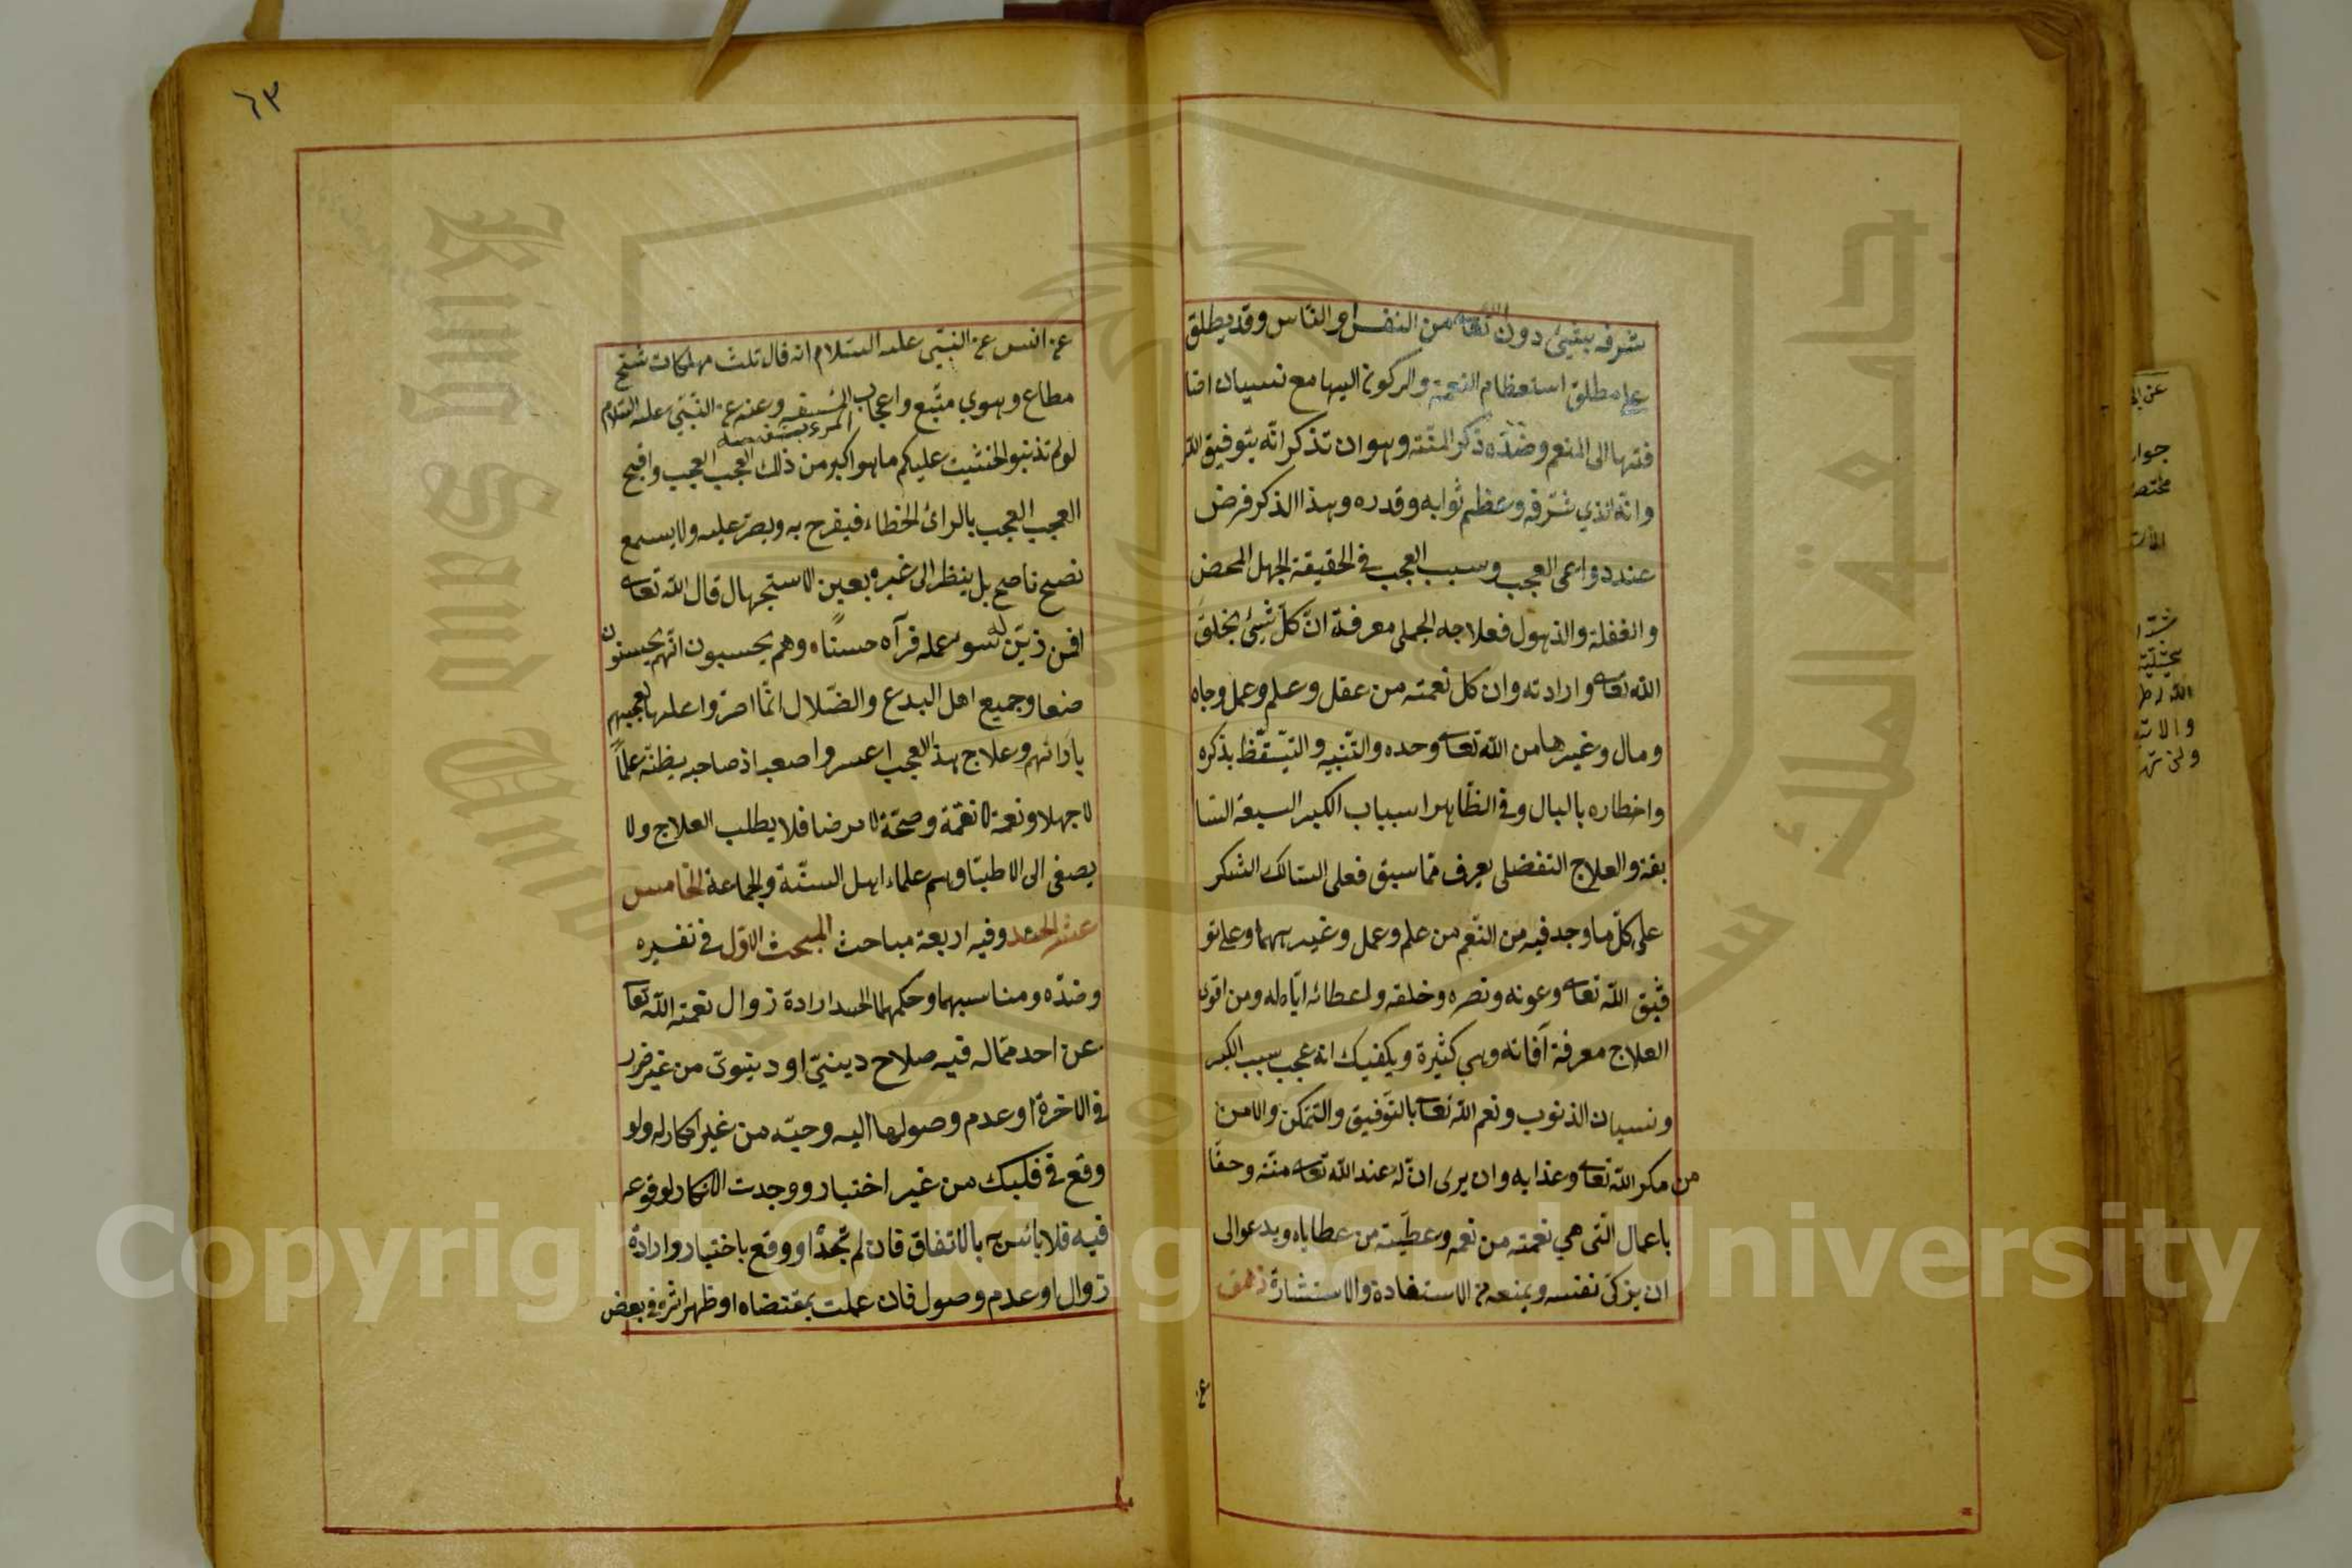 شرفه بشئ دون الله تعا من النفس او الناس وقد يطلق
على مطلق استعظام النعمة والركون اليها مع نسيان اضا
فتها الى المنعم وضده ذكر المنة وهو ان تذكر انه بتوفيق الله
وانه الذي شرفه وعظم ثوابه وقدره وهذا الذكر فرض
عند دواعى العجب وسبب العجب في الحقيقة الجهل المحض
والغفلة والذهول فعلاجه الجملى معرفة ان كل شئ بخلق
الله تعا وارادته وان كل نعمة من عقل وعلم وعمل وجاه
ومال وغيرها من الله تعا وحده والتنبيه والتيقظ بذكره
واخطاره بالبال وفي الظاهر اسباب الكبر السبعة السا
بقة والعلاج التفضلى يعرف مما سبق فعلى السالك الشكر
على كل ما وجد فيه من النعم من علم وعمل وغيرهما وعلى تو
فيق الله تعا وعونه ونصره وخلقه واعطائه اياه له ومن اقوى
العلاج معرفة آفاته وهي كثيرة ويكفيك انه عجب سبب الكبر
ونسيان الذنوب ونعم الله تعا بالتوفيق والتمكن والامن
من مكر الله تعا وعذابه وان يرى ان له عند الله تعا منة وحقا
باعمال التى هي نعمة من نعمه وعطية من عطاياه ويدعو الى
ان يزكى نفسه ويمنعه من الاستفادة والاستشارة
٦٣
عن انس عن النبى عليه السلام انه قال ثلث مهلكات شح
مطاع وهوى متبع واعجاب المرء بنفسه وعنه عن النبى عليه السلام
لو لم تذنبوا لخشيت عليكم ما هو اكبر من ذلك العجب العجب واقبح
العجب العجب بالرائ الخطاء فيفرح به ويصر عليه ولا يسمع
نصح ناصح بل ينظر الى غيره بعين الاستجهال قال الله تعا
افمن زين له سوء عمله فرآه حسنا ه وهم يحسبون انهم يحسنون
صنعا وجميع اهل البدع والضلال انما اصروا عليها لعجبهم
بآرائهم وعلاج هذا العجب اعسر واصعب اذ صاحبه يظنه علما
لا جهلا ونعمة لا نقمة وصحة لا مرضا فلا يطلب العلاج ولا
يصغى الى الاطبا وهم علماء اهل السنة والجماعة الخامس
عشر الحسد وفيه اربعة مباحث المبحث الاول في تفسيره
وضده ومناسبهما وحكمهما الحسد ارادة زوال نعمة الله تعا
عن احد مما له فيه صلاح دينى او دنيوى من غير ضرر
في الاخرة او عدم وصولها اليه وحبه من غير انكار له ولو
وقع في قلبك من غير اختيار ووجدت الانكار لوقوعه
فيه فلا بائس به بالاتفاق فان لم تجد او وقع باختيار وارادة
زوال او عدم وصول فان عملت بمقتضاه او ظهر اثره في بعض
Copyright © King Saud University